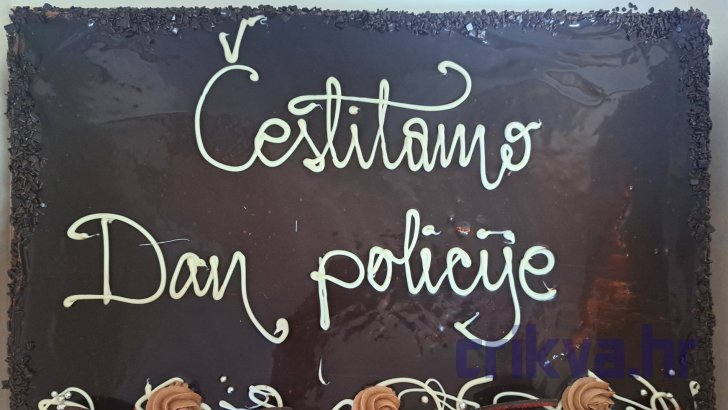 Čestitamo
Dan policije
crikva.hr